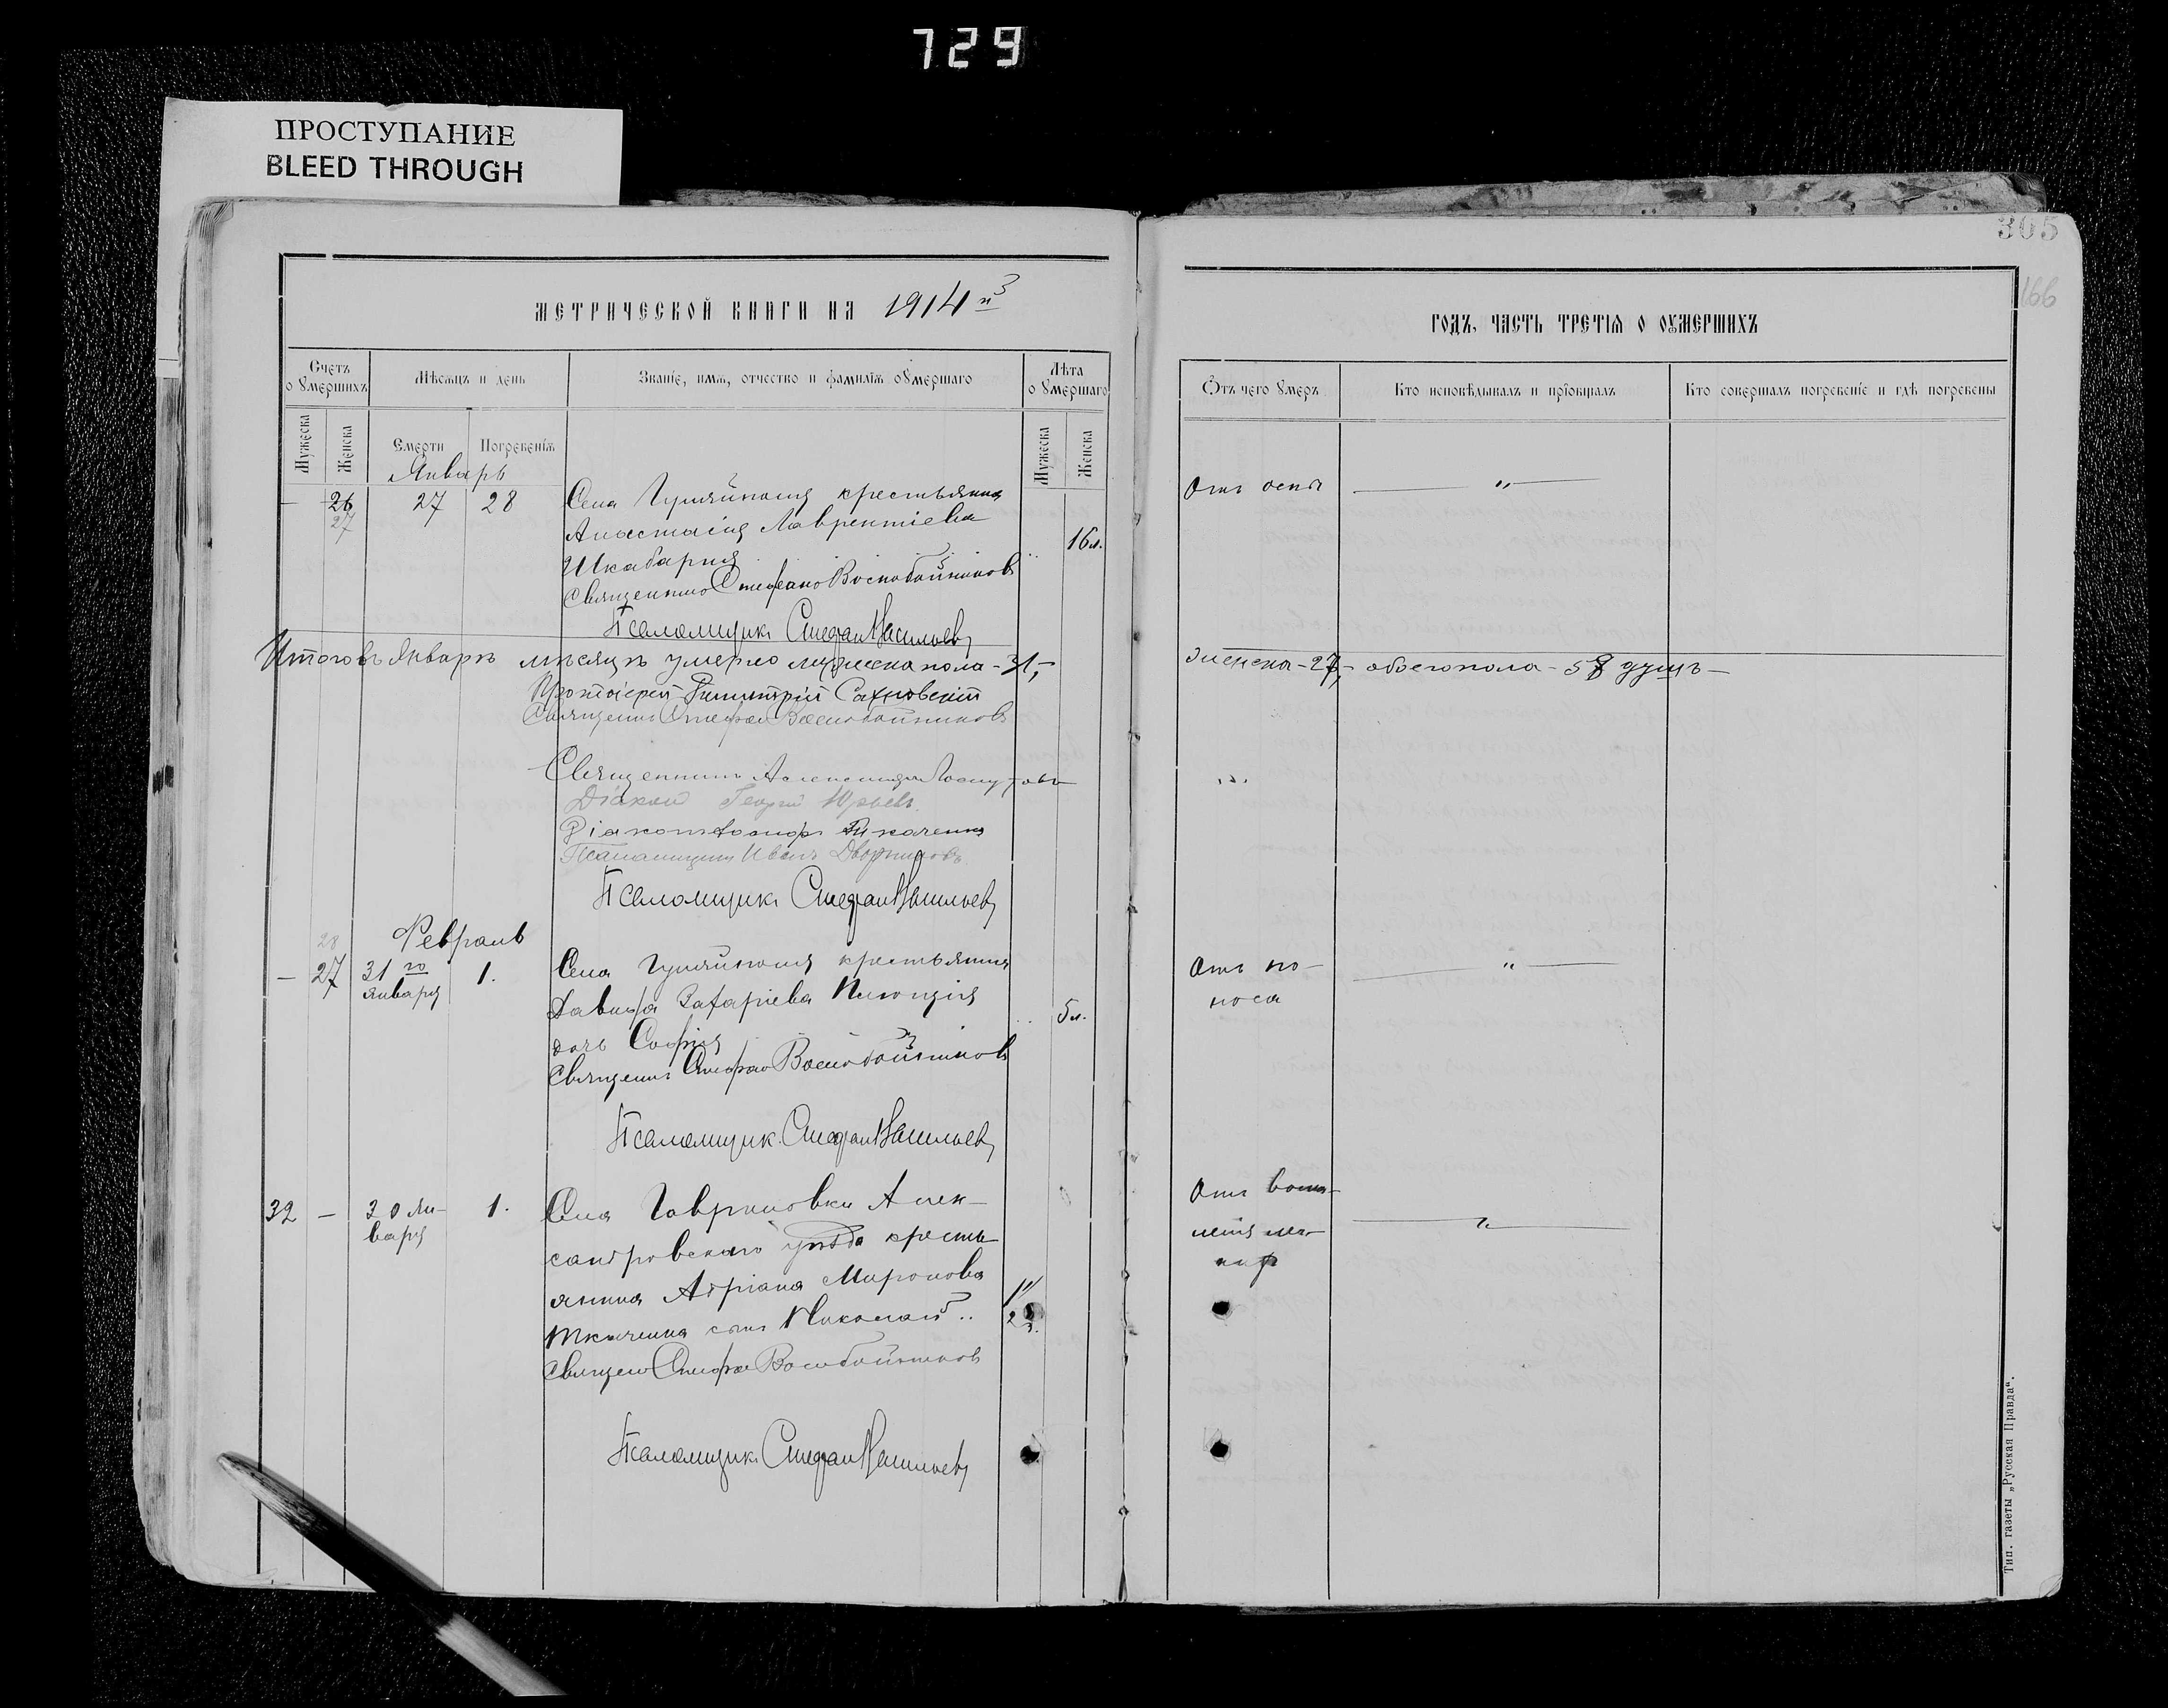 729
ПРОСТУПАНИЕ
BLEED THROUGH
365
166
МЕТРИЧЕСКОЙ КНИГИ НА 1914й
ГОДЪ, ЧАСТЬ ТРЕТІЯ О ОУМЕРШИХЪ
Счетъ оумершихъ
Мѣсяцъ и день
Званіе, имя, отчество и фамилія оумершаго
Лѣта оумершаго
Отъ чего умеръ
Кто исповѣдывалъ и пріобщалъ
Кто совершалъ погребеніе и гдѣ погребены
Мужеска
Женска
Смерти
Погребенія
Мужеска
Женска
Январь
— 26 27 28 Села Гуляйполя крестьянка Отъ оспы — " —
27
Анастасія Лаврентіева
16 л.
Шкабарня
Священникъ Стефанъ Воскобойниковъ
Псаломщикъ Стефанъ Васильевъ
Итого въ Январѣ мѣсяцѣ умерло мужеска пола - 31, - женска - 27, - обоего пола - 58 душъ —
Протоіерей Димитрій Сахновскій
Священникъ Стефанъ Воскобойниковъ
Священникъ Александръ
Діаконъ Георгій Юрьевъ
Діаконъ Ткаченко
Псаломщикъ Иванъ Дворниковъ
Псаломщикъ Стефанъ Васильевъ
Февраль
28
— 27 31го 1. Села Гуляйполя крестьянина Отъ по- — " —
января
Давида Захаріева носа
5 л.
дочь Софія
Священникъ Стефанъ Воскобойниковъ
Псаломщикъ Стефанъ Васильевъ
32 — 30 Ян- 1. Села Гавриловки Алек- Отъ воспа-
варя
сандровскаго уѣзда кресть- ленія лег-
янина Адріана Миронова кихъ
Ткаченка сынъ Николай
Священникъ Стефанъ Воскобойниковъ
Псаломщикъ Стефанъ Васильевъ
Тип. газеты „Русская Правда“.